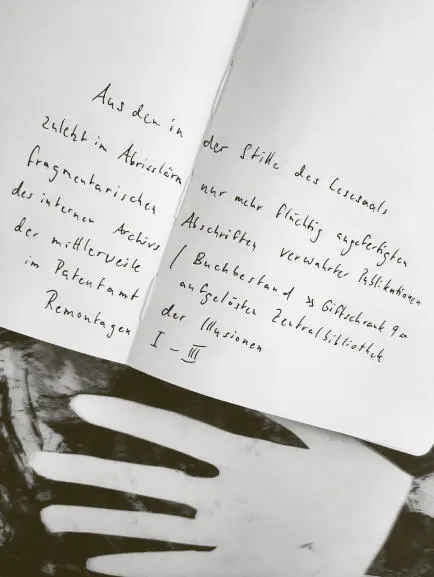 Aus den in der Stille des Lesesaals
zuletzt im Abrisslärm nur mehr flüchtig angefertigten
fragmentarischen Abschriften verwahrter Publikationen
des internen Archivs / Buchbestand »Giftschrank 9«
der mittlerweile aufgelösten Zentralbibliothek
im Patentamt der Illusionen
Remontagen I – III